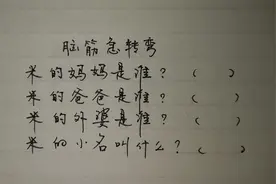 脑筋急转弯
米的妈妈是谁？（　）
米的爸爸是谁？（　）
米的外婆是谁？（　）
米的小名叫什么？（　）